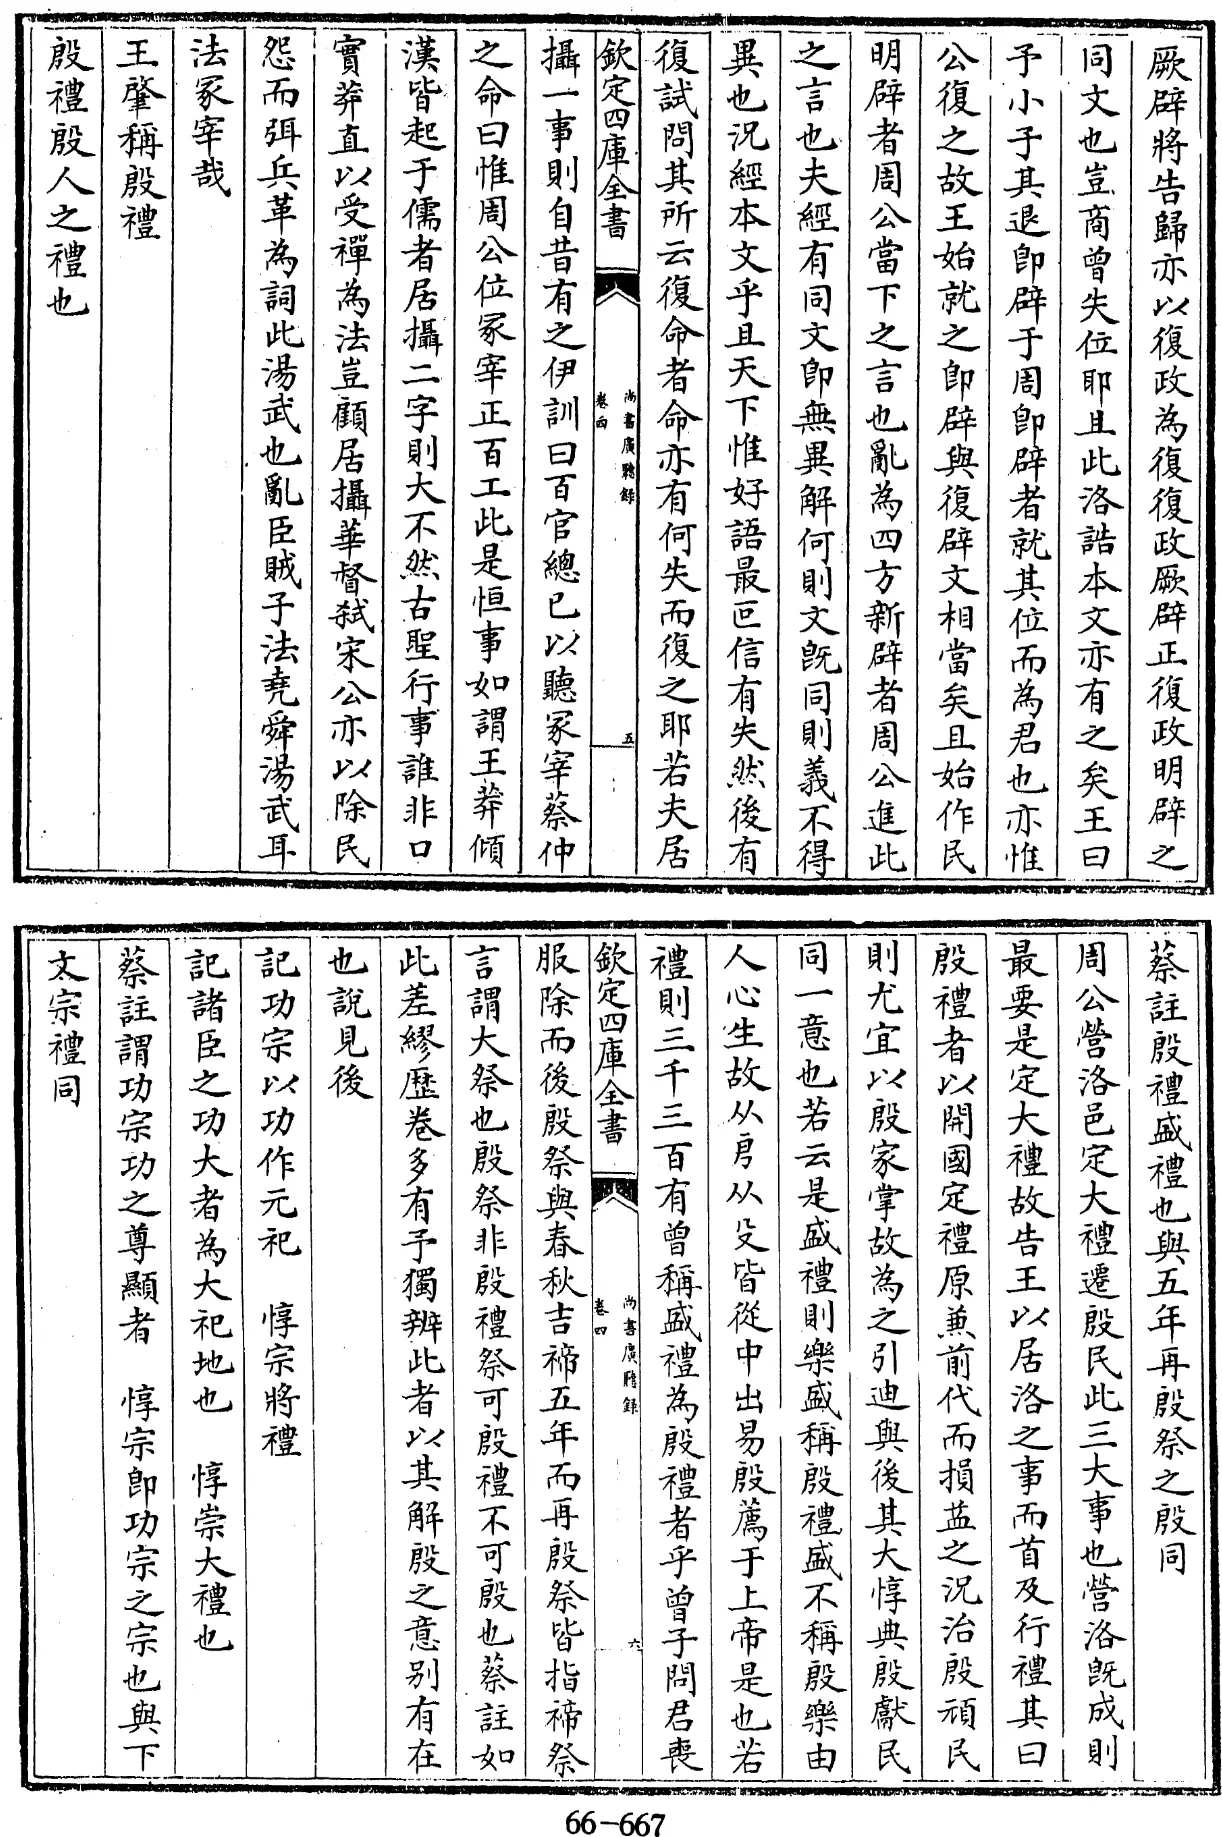 厥辟將告歸亦以復政為復復政厥辟正復政明辟之
同文也豈商曾失位耶且此洛誥本文亦有之矣王曰
予小子其退卽辟于周卽辟者就其位而為君也亦惟
公復之故王始就之卽辟與復辟文相當矣且始作民
明辟者周公當下之言也亂為四方新辟者周公進此
之言也夫經有同文卽無異解何則文旣同則義不得
異也況經本文乎且天下惟好語最叵信有失然後有
復試問其所云復命者命亦有何失而復之耶若夫居
欽定四庫全書
尚書廣聽錄
卷四
五
攝一事則自昔有之伊訓曰百官總已以聽冢宰蔡仲
之命曰惟周公位冢宰正百工此是恒事如謂王莽傾
漢皆起于儒者居攝二字則大不然古聖行事誰非口
實莽直以受禪為法豈顧居攝華督弒宋公亦以除民
怨而弭兵革為詞此湯武也亂臣賊子法堯舜湯武耳
法冢宰哉
王肈稱殷禮
殷禮殷人之禮也
蔡註殷禮盛禮也與五年再殷祭之殷同
周公營洛邑定大禮遷殷民此三大事也營洛旣成則
最要是定大禮故告王以居洛之事而首及行禮其曰
殷禮者以開國定禮原兼前代而損益之況治殷頑民
則尤宜以殷家掌故為之引迪與後其大惇典殷獻民
同一意也若云是盛禮則樂盛稱殷禮盛不稱殷樂由
人心生故从㐆从殳皆從中出易殷薦于上帝是也若
禮則三千三百有曾稱盛禮為殷禮者乎曾子問君喪
欽定四庫全書
尚書廣聽錄
卷四
六
服除而後殷祭與春秋吉禘五年而再殷祭皆指禘祭
言謂大祭也殷祭非殷禮祭可殷禮不可殷也蔡註如
此差繆歷卷多有予獨辨此者以其解殷之意別有在
也說見後
記功宗以功作元祀　惇宗將禮
記諸臣之功大者為大祀地也　惇崇大禮也
蔡註謂功宗功之尊顯者　惇宗卽功宗之宗也與下
文宗禮同
66-667